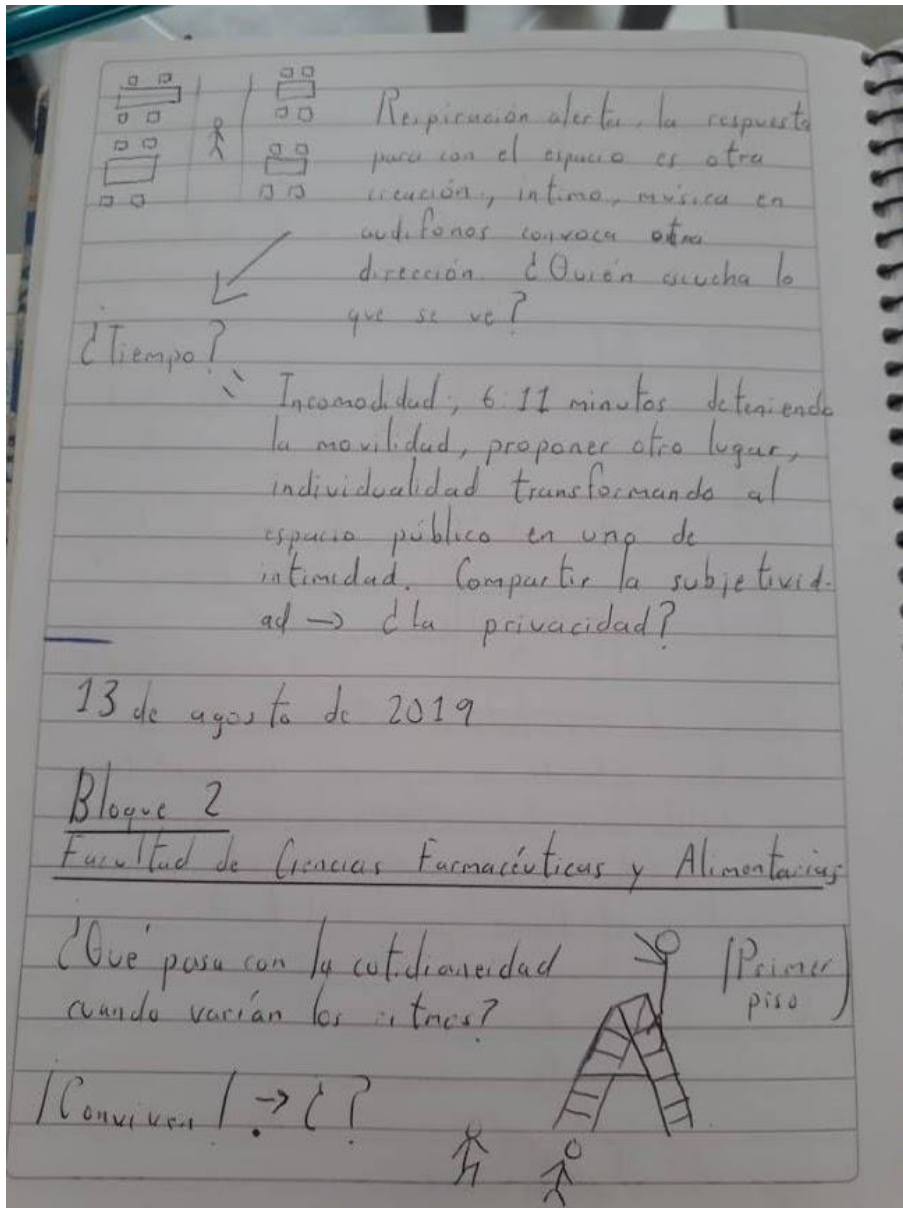 Respiración alerta, la respuesta
para con el espacio es otra
creación, intimo, música en
audifonos convoca otra
dirección. ¿Quién escucha lo
que se ve?
¿Tiempo?
Incomodidad, 6:11 minutos deteniendo
la movilidad, proponer otro lugar,
individualidad transformando al
espacio público en uno de
intimidad. Compartir la subjetivid-
ad → ¿la privacidad?
13 de agosto de 2019
Bloque 2
Facultad de Ciencias Farmacéuticas y Alimentarias
¿Qué pasa con la cotidianeidad
cuando varían los ritmos?
(Primer
piso)
¿Conviven? → ¿?